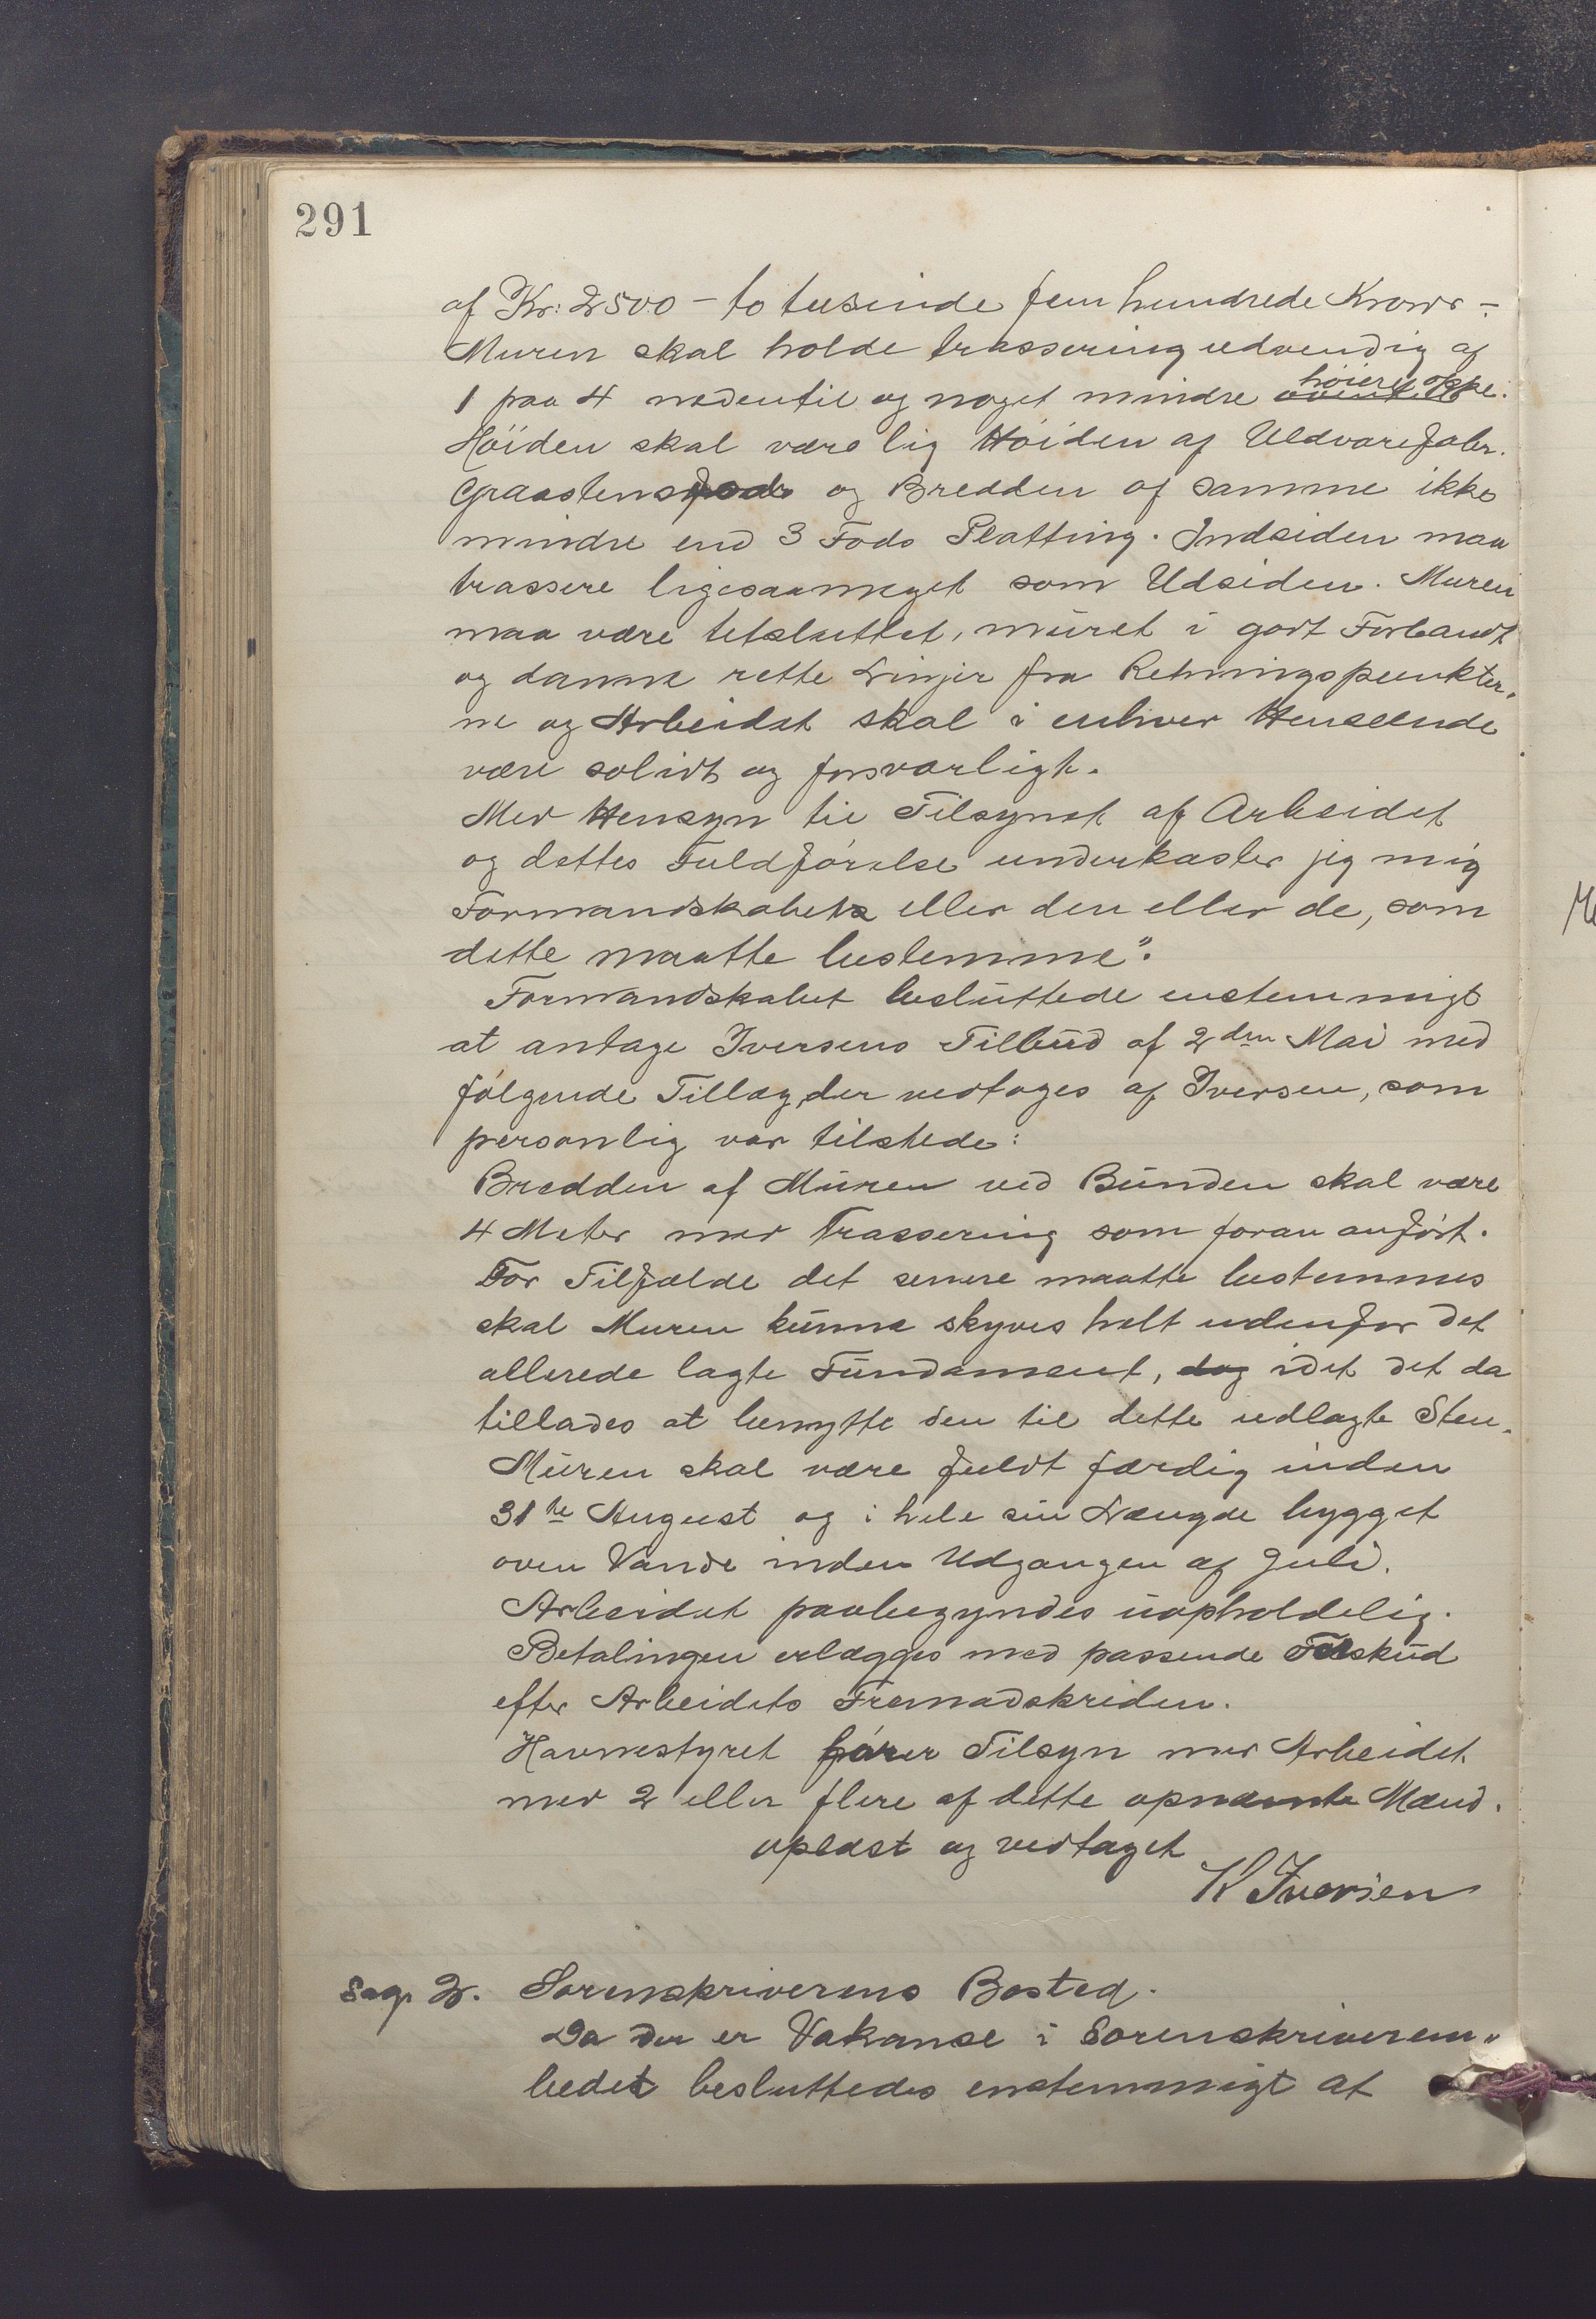 291
af Kr: 2500 – to tusinde fem hundrede Kroner –
Muren skal holde trassering udvendig af
1 paa 4 nedentil og noget mindre høiere oppe.
Høiden skal være lig Høiden af Uldvarefabr.
Graastens og Bredden af samme ikke
mindre end 3 Fods Platting. Indsiden maa
trassere ligesaameget som Udsiden. Muren
maa være tetsluttet, muret i godt Forbandt
og danne rette Linjer fra Retningspunkter-
ne og Arbeidet skal i enhver Henseende
være solidt og forsvarligt.
Med Hensyn til Tilsynet af Arbeidet
og dettes Fuldførelse underkaster jeg mig
Formandskabets eller den eller de, som
dette maatte bestemme".
Formandskabet besluttede enstemmigt
at antage Iversens Tilbud af 2den Mai med
følgende Tillæg, der vedtoges af Iversen, som
personlig var tilstede:
Bredden af Muren ved Bunden skal være
4 Meter med Trassering som foran anført.
For Tilfælde det senere maatte bestemmes
skal Muren kunne skyves helt udenfor det
allerede lagte Fundament, dog idet det da
tillades at benytte den til dette udlagte Sten.
Muren skal være fuldt færdig inden
31te August og i hele sin Længde bygget
oven Vande inden Udgangen af Juli.
Arbeidet paabegyndes uopholdelig.
Betalingen erlægges med passende Forskud
efter Arbeidets Fremadskriden.
Havnestyret fører Tilsyn med Arbeidet
med 2 eller flere af dette opnævnte Mænd.
oplæst og vedtaget
K Iversen
Sag 2. Sorenskriverens Bosted.
Da der er Vakanse i Sorenskriverem-
bedet besluttedes enstemmigt at